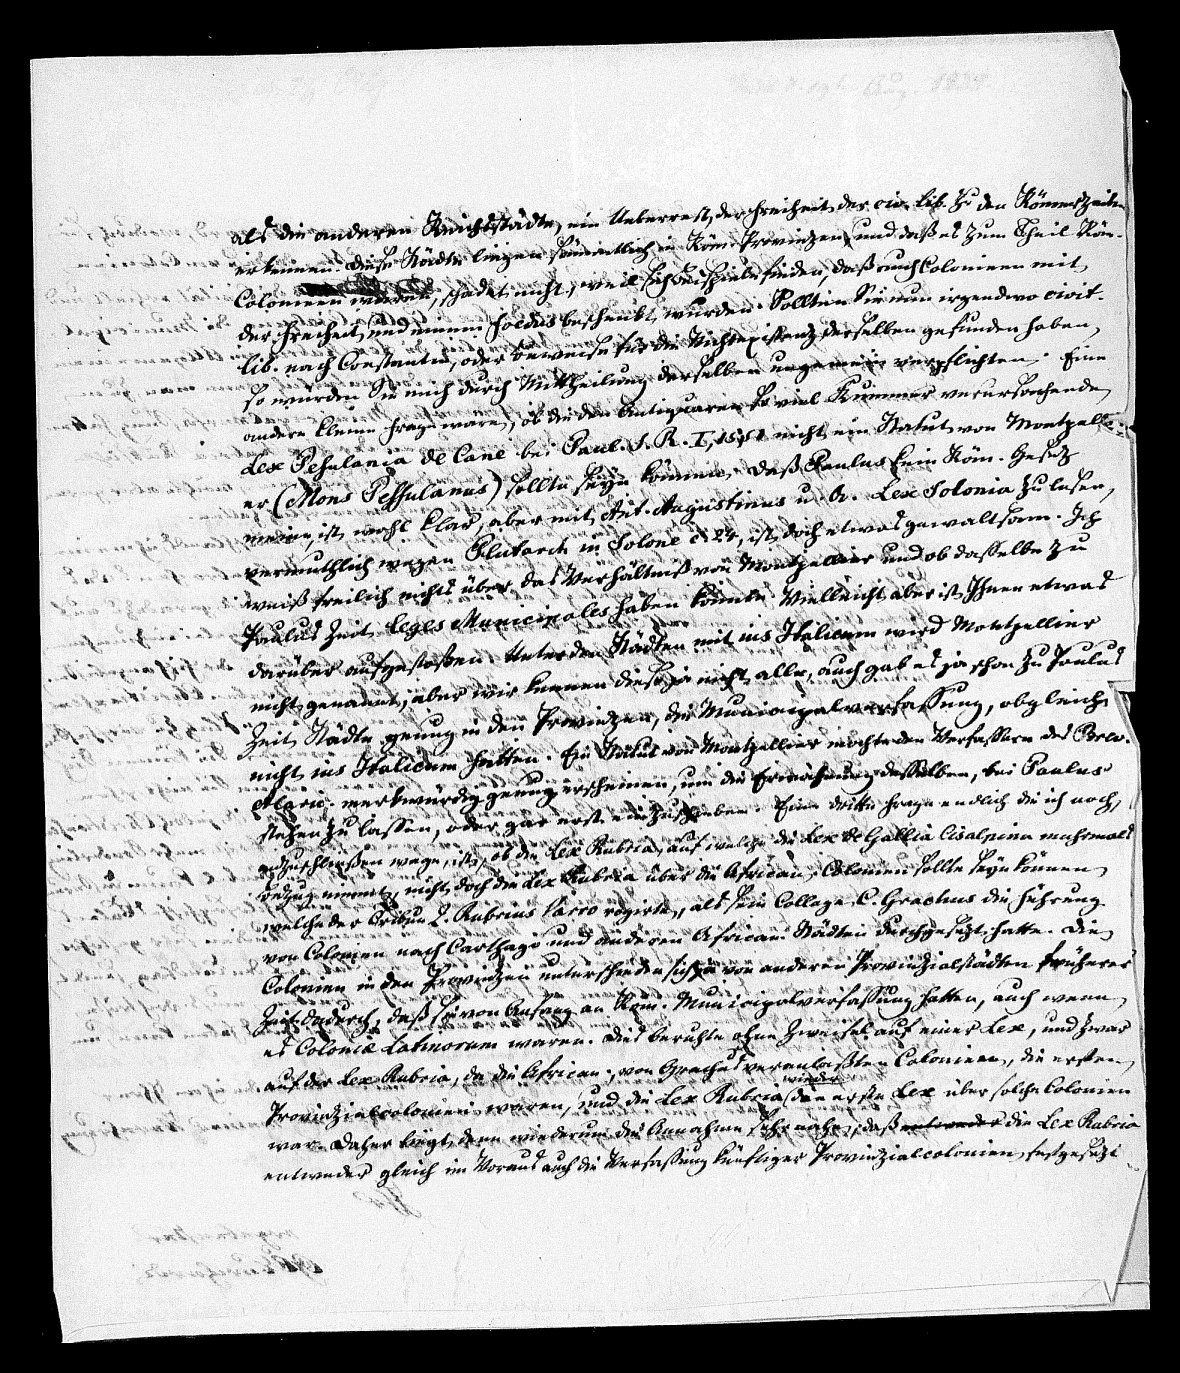 als die anderen Reichsstädte, ein Ueberrest der Freiheit der civ. lib. zu den Römerzeiten
erkennen. Diese Städte liegen sämmtlich in Röm. Provinzen, und daß es zum Theil Röm.
Colonieen waren, schadet nicht, weil sich Beispiele finden, daß auch Colonieen mit
der Freiheit und einem foedus beschenkt wurden. Sollten Sie nun irgendwo civit.
lib. nach Constantin, oder Beweise für die Nichtexistenz derselben gefunden haben,
so würden Sie mich durch Mittheilung derselben ungemein verpflichten. Eine
andere kleine Frage wäre, ob die den Antiquaren so viel Kummer verursachende
Lex Pesulania de Cane bei Paul. S. R. I, 15, §1 nicht ein Statut von Montpelli-
er (Mons Pessulanus) sollte seyn können. Daß Paulus kein Röm. Gesetz
meine, ist wohl klar, aber mit Ant. Augustinus u. A. Lex Solonia zu lesen,
vermuthlich wegen Plutarch in Solone c. 24, ist doch etwas gewaltsam. Ich
weiß freilich nichts über das Verhältniß von Montpellier und ob dasselbe zu
Paulus Zeit leges Municipales haben konnte. Vielleicht aber ist Ihnen etwas
darüber aufgestoßen. Unter den Städten mit ius Italicum wird Montpellier
nicht genannt, aber wir kennen diese ja nicht alle, auch gab es ja schon zu Paulus
Zeit Städte genung in den Provinzen, die Municipalverfassung, obgleich
nicht ius Italicum hatten. Ein Statut von Montpellier mochte den Verfassern des Brev.
Alaric. merkwürdig genung erscheinen, um die Erwähnung desselben, bei Paulus
stehen zu lassen, oder gar erst einzuschieben. Eine dritte Frage endlich die ich noch
anzuschließen wage, ist, ob die Lex Rubria, auf welche die Lex de Gallia Cisalpina mehrmals
Bezug nimmt, nicht doch die Lex Rubria über die African. Colonien sollte seyn können
welche der Tribun L. Rubrius Varro rogirte, als sein College C. Grachus die Führung
von Colonien nach Carthago und anderen African. Städten durchgesetzt hatte. Die
Colonien in den Provinzen unterschieden sich ja von anderen Provinzialstädten früherer
Zeit dadurch, daß sie von Anfang an Röm. Municipalverfassung hatten, auch wenn
es Coloniæ Latinorum waren. Dies beruhte ohne Zweifel auf einer Lex, und zwar
auf der Lex Rubria, da die African., von Grachus veranlaßten Colonieen, die ersten
Provinzialcolonien waren, und die Lex Rubria wieder die erste Lex über solche Colonien
war. Daher liegt denn wiederum die Annahme sehr nahe, daß entweder die Lex Rubria
entweder gleich im Voraus auch die Verfassung künftiger Provinzialcolonien festgesetzt